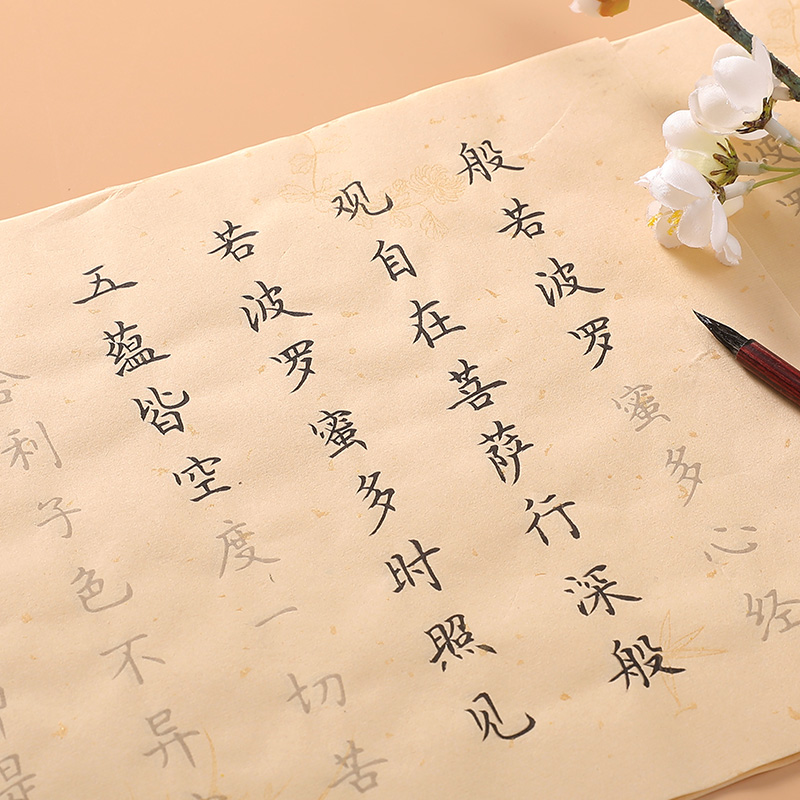 般若波罗蜜多心经
观自在菩萨行深般
若波罗蜜多时照见
五蕴皆空度一切苦
舍利子色不异
是